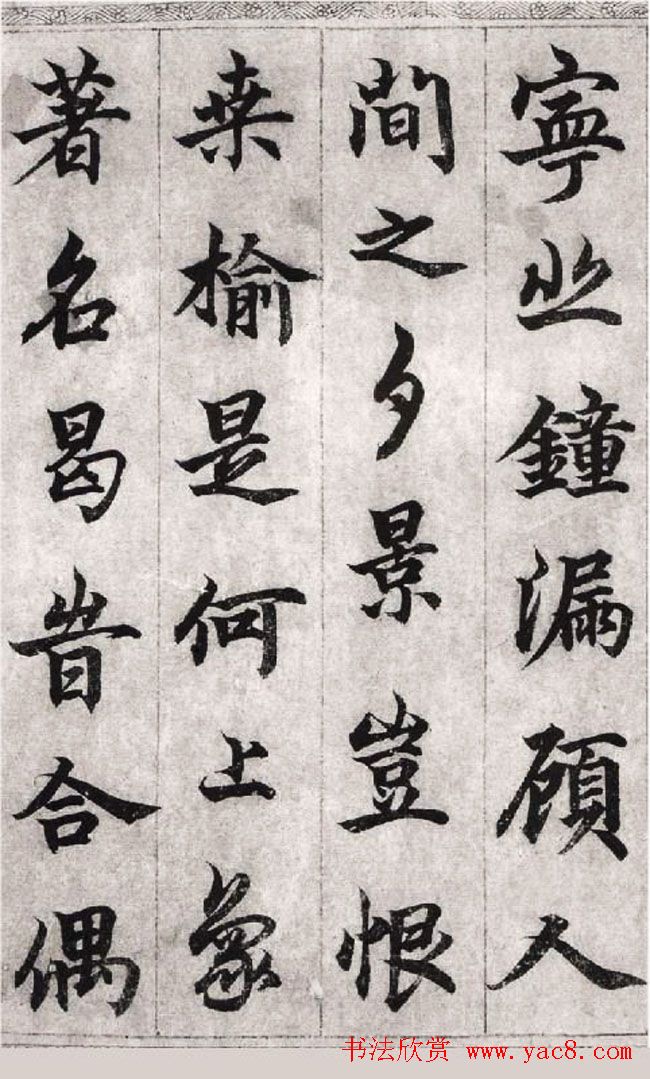 寧鐘漏顧人
間之夕景豈恨
桑榆是何上象
著名曷旹合偶
书法欣赏 www.yac8.com